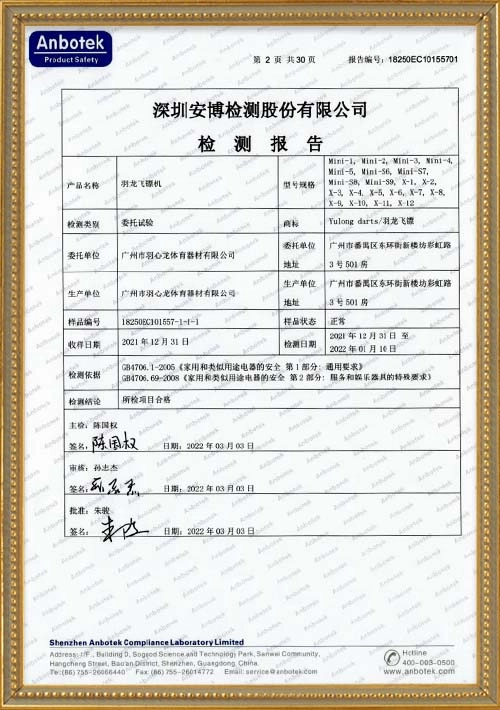 Anbotek
Product Safety
第 2 页 共30页 报告编号: 18250EC10155701
深圳安博检测股份有限公司
检 测 报 告
产品名称 羽龙飞镖机 型号规格 Mini-1, Mini-2, Mini-3, Mini-4,
Mini-5, Mini-S6, Mini-S7,
Mini-S8, Mini-S9, X-1, X-2,
X-3, X-4, X-5, X-6, X-7, X-8,
X-9, X-10, X-11, X-12
检测类别 委托试验 商标 Yulong darts/羽龙飞镖
委托单位 广州市羽心龙体育器材有限公司 委托单位地址 广州市番禺区东环街新楼坊彩虹路
3号501房
生产单位 广州市羽心龙体育器材有限公司 生产单位地址 广州市番禺区东环街新楼坊彩虹路
3号501房
样品编号 18250EC101557-1-1-1 样品状态 正常
收样日期 2021年12月31日 检测日期 2021年12月31日 至
2022年01月10日
检测依据 GB4706.1-2005《家用和类似用途电器的安全 第1部分: 通用要求》
GB4706.69-2008《家用和类似用途电器的安全 第2部分: 服务和娱乐器具的特殊要求》
检测结论 所检项目合格
主检: 陈国权
签名: 陈国权 日期: 2022年03月03日
审核: 孙志杰
签名: 日期: 2022年03月03日
批准: 朱骏
签名: 日期: 2022年03月03日
Shenzhen Anbotek Compliance Laboratory Limited
Address: 1/F., Building D, Sogood Science and Technology Park, Sanwei Community,
Hangcheng Street, Bao'an District, Shenzhen, Guangdong, China.
Tel:(86) 755-26066440 Fax: (86) 755-26014772 Email: service@anbotek.com
Hotline
400-003-0500
www.anbotek.com